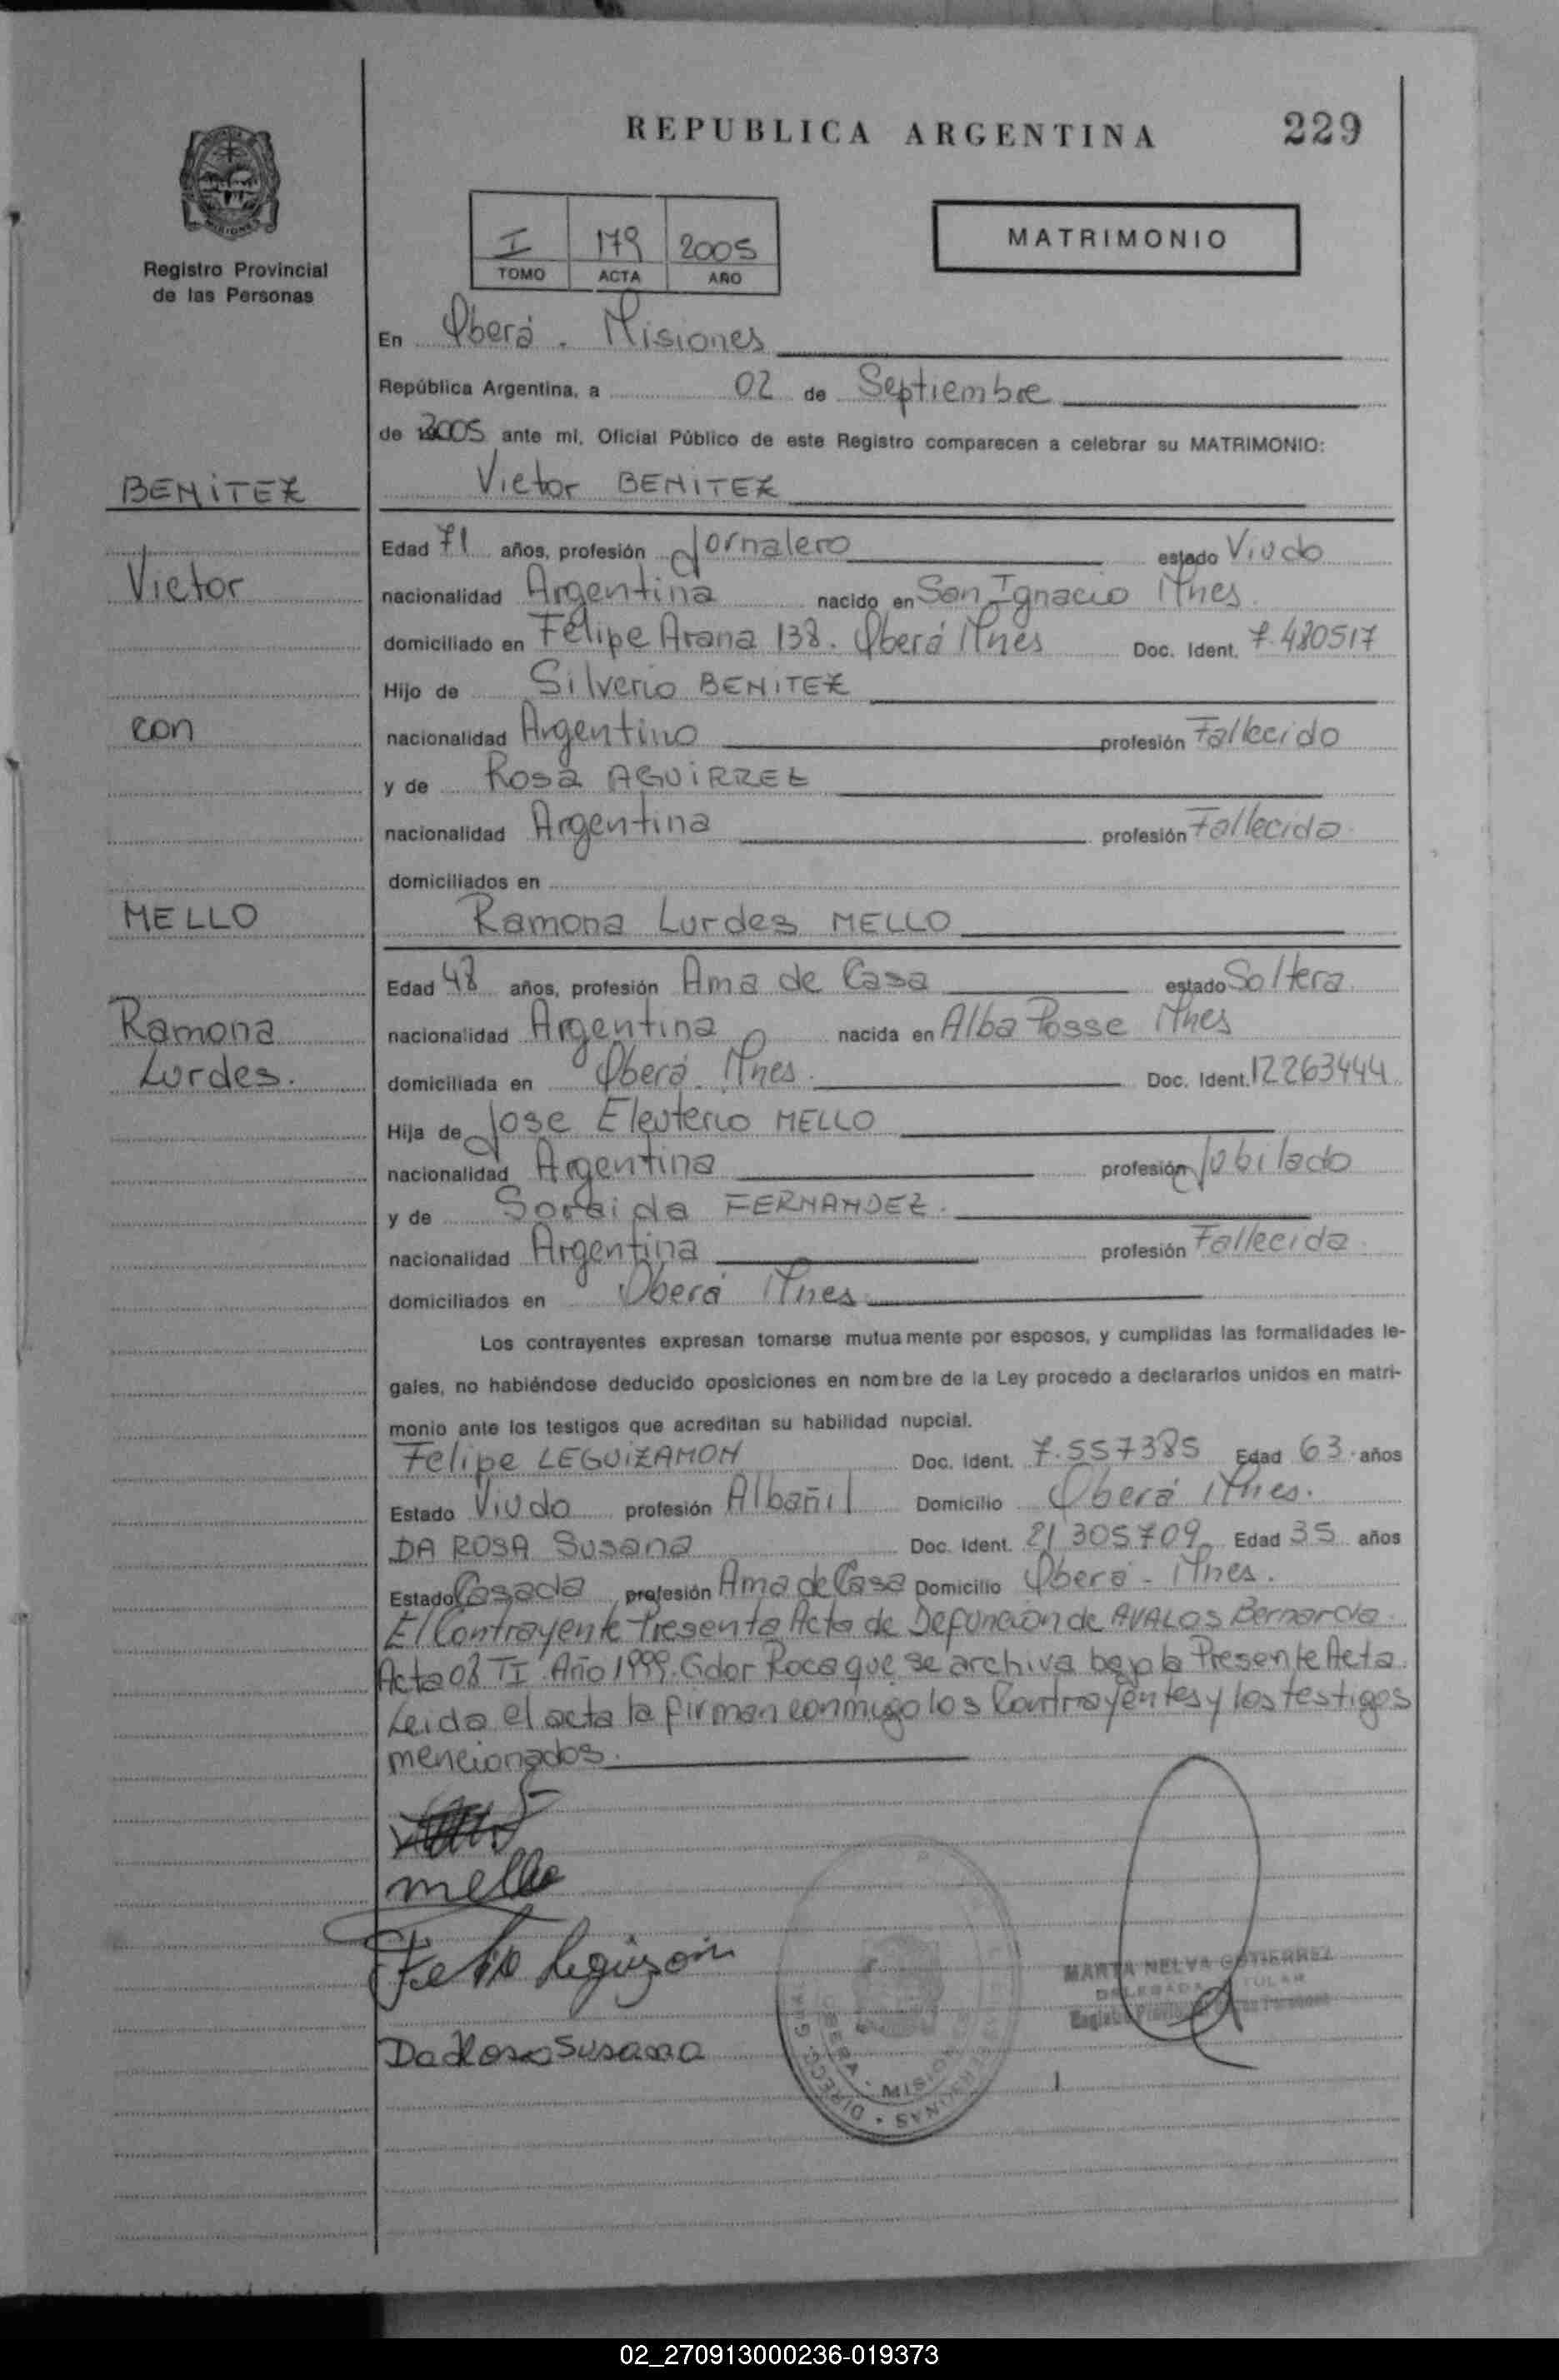 REPUBLICA ARGENTINA 229
Registro Provincial
de las Personas
I 179 2005
TOMO ACTA AÑO
MATRIMONIO
En Oberá. Misiones
República Argentina, a 02 de Septiembre
de 2005 ante mi, Oficial Público de este Registro comparecen a celebrar su MATRIMONIO:
BENITEZ
Victor BENITEZ
Edad 71 años, profesión Jornalero estado Viudo
Victor
nacionalidad Argentina nacido en San Ignacio Mnes.
domiciliado en Felipe Arana 138. Oberá Mnes Doc. Ident. 7.480517
Hijo de Silverio BENITEZ
con
nacionalidad Argentino profesión Fallecido
y de Rosa AGUIRREZ
nacionalidad Argentina profesión Fallecida
domiciliados en
MELLO
Ramona Lurdes MELLO
Edad 48 años, profesión Ama de Casa estado Soltera
Ramona
nacionalidad Argentina nacida en Alba Posse Mnes
Lurdes.
domiciliada en Oberá. Mnes. Doc. Ident. 12263444
Hija de Jose Eleuterio MELLO
nacionalidad Argentina profesión Jubilado
y de Soraida FERNANDEZ.
nacionalidad Argentina profesión Fallecida
domiciliados en Oberá Mnes
Los contrayentes expresan tomarse mutuamente por esposos, y cumplidas las formalidades le-
gales, no habiéndose deducido oposiciones en nombre de la Ley procedo a declararlos unidos en matri-
monio ante los testigos que acreditan su habilidad nupcial.
Felipe LEGUIZAMON Doc. Ident. 7.557385 Edad 63 años
Estado Viudo profesión Albañil Domicilio Oberá Mnes.
DA ROSA Susana Doc. Ident. 21305709 Edad 35 años
Estado Casada profesión Ama de Casa Domicilio Oberá - Mnes.
El Contrayente Presenta Acta de Defuncion de AVALOS Bernarda
Acta 08 TI Año 1999. Gdor Roca que se archiva bajo la Presente Acta
Leida el acta la firman conmigo los Contrayentes y los testigos
mencionados.
mello
Da Rosa Susana
MARTA NELVA GUTIERREZ
DELEGADA TITULAR
OBERA - MISIONES
02_270913000236-019373